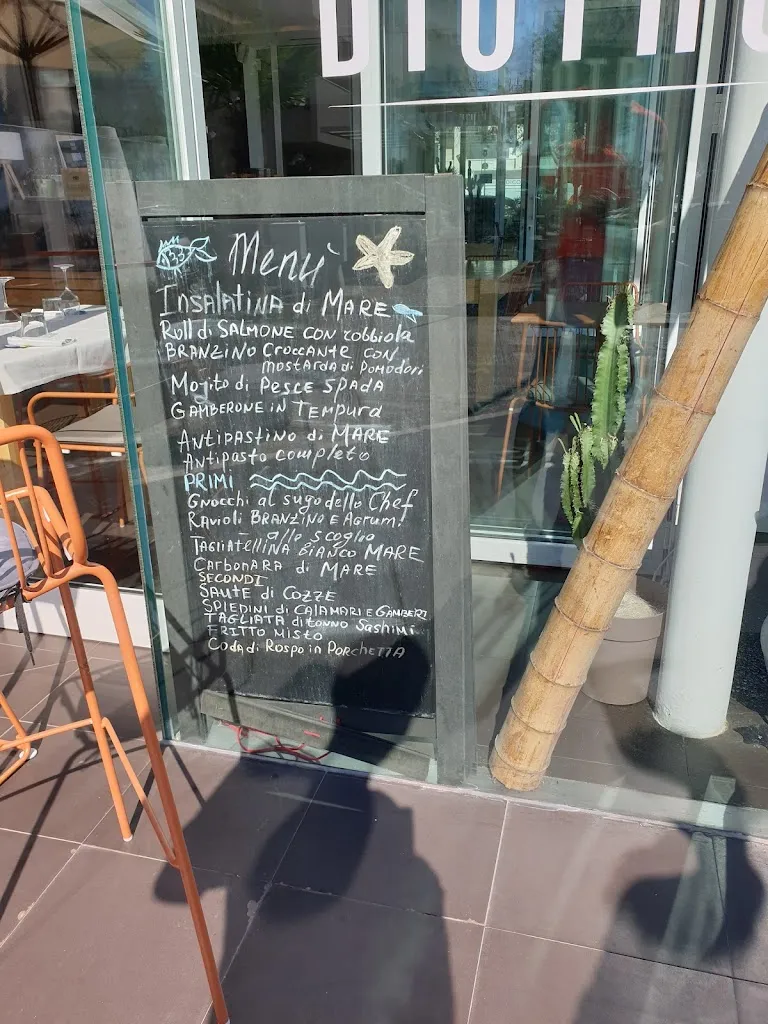 BISTRO
Menù
INSALATINA di MARE
Roll di SALMONE CON robbiola
BRANZINO Croccante CON
mostarda di Pomodori
Mojito di PESCE SPADA
GAMBERONE IN TEMPURA
ANTIPASTINO di MARE
Antipasto completo
PRIMI
Gnocchi al sugo dello Chef
RAVIOLI BRANZINO E Agrumi
allo scoglio
TAGLIATELLINA BIANCO MARE
CARBONARA di MARE
SECONDI
SAUTE di COZZE
SPIEDINI di CALAMARI E GAMBERI
TAGLIATA di tonno Sashimi
FRITTO MISTO
CODA di Rospo in PORCHETTA